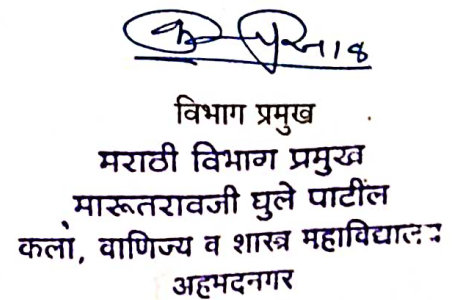 विभाग प्रमुख
मराठी विभाग प्रमुख
मारूतरावजी घुले पाटील
कला, वाणिज्य व शास्त्र महाविद्यालय
अहमदनगर